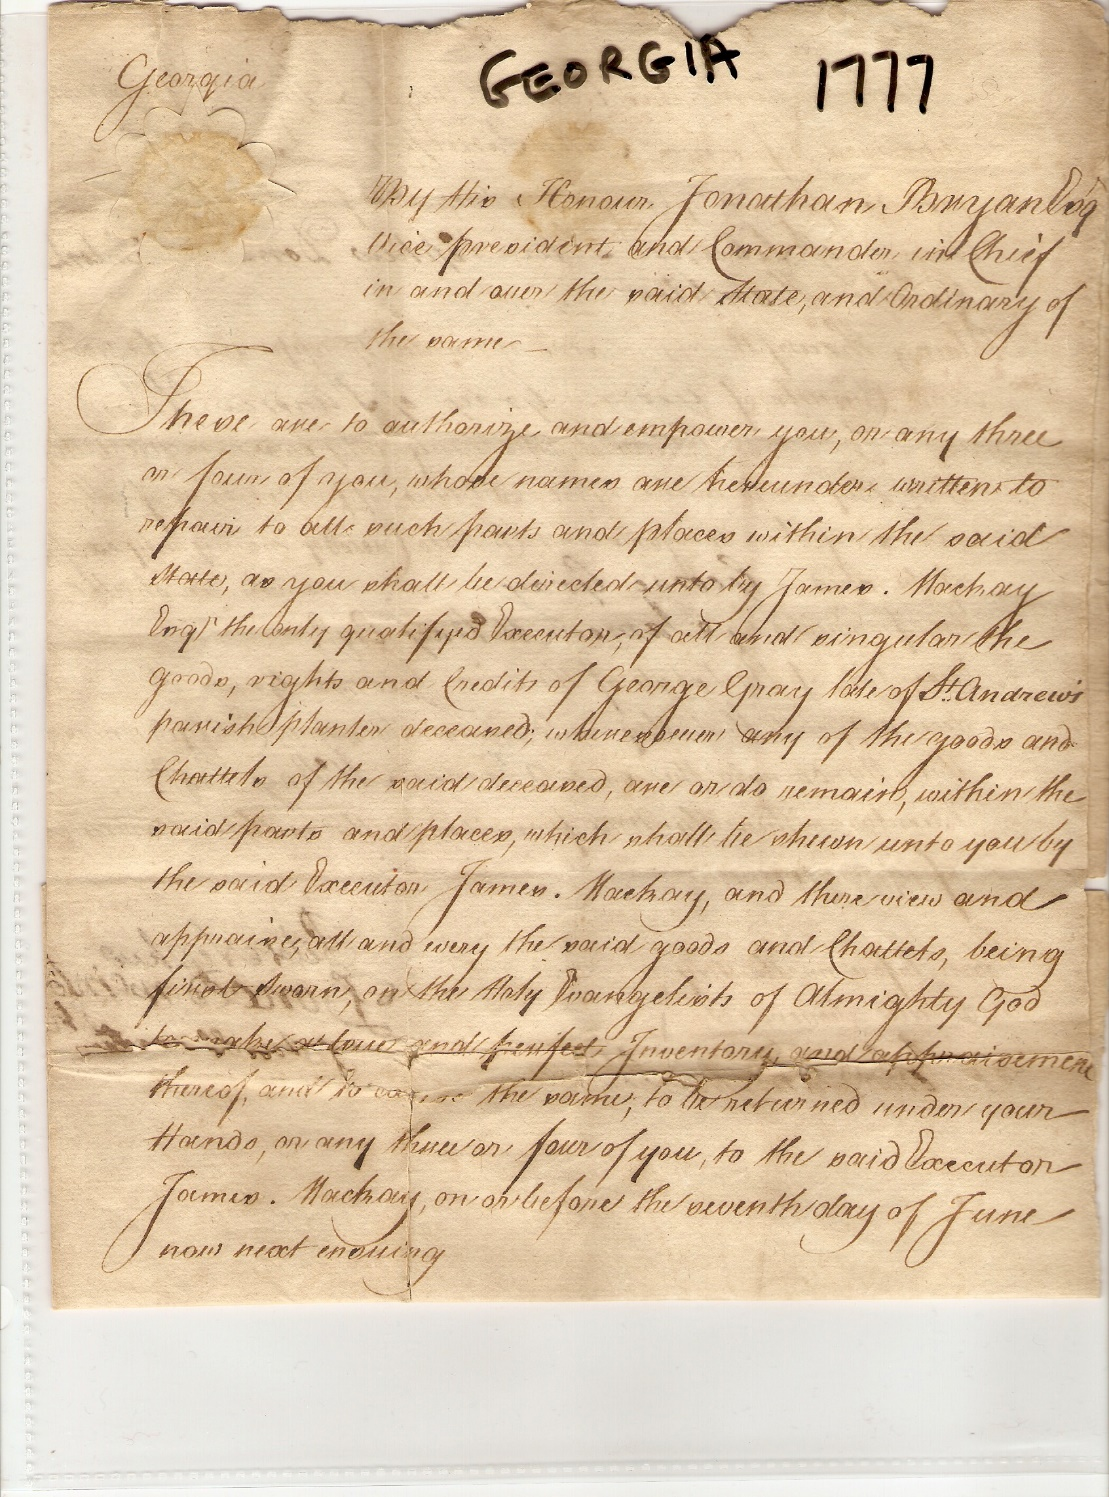 GEORGIA 1777
Georgia
By his Honour Jonathan Bryan Esqr
Vice president and Commander in Chief
in and over the said State, and Ordinary of
the same
These are to authorize and empower you, or any three
or four of you, whose names are hereunder written to
repair to all such parts and places within the said
State, as you shall be directed unto by James. Mackay
Esqr the only qualifyed Executor, of all and singular the
goods, rights and Credits of George Gray late of St. Andrew's
parish planter deceased; wheresoever any of the goods and
Chattels of the said deceased, are or do remain, within the
said parts and places, which shall be shewn unto you by
the said Executor James. Mackay, and there view and
appraise, all and every the said goods and Chattels, being
first Sworn, on the Holy Evangelists of Almighty God
to make a true and perfect Inventory, and appraisement
thereof, and to cause the same, to be returned under your
Hands, or any three or four of you, to the said Executor
James. Mackay, on or before the seventh day of June
now next ensuing